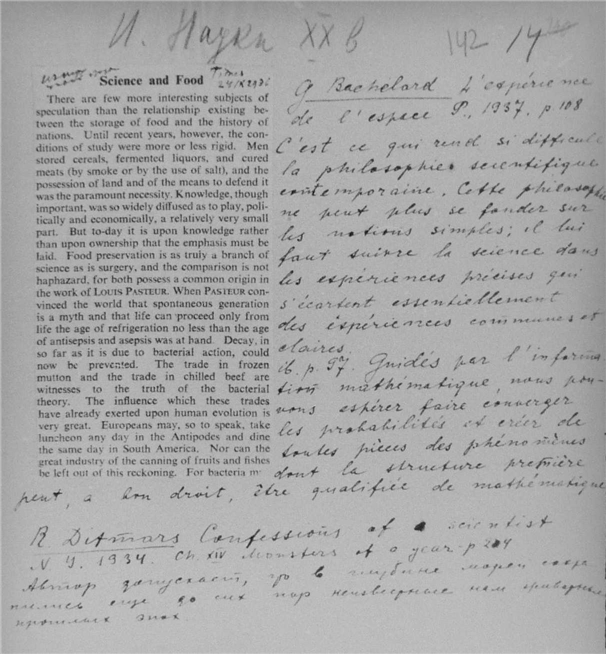 И. Науки XX в
142
14
Science and Food
Times
There are few more interesting subjects of
speculation than the relationship existing be-
tween the storage of food and the history of
nations. Until recent years, however, the con-
ditions of study were more or less rigid. Men
stored cereals, fermented liquors, and cured
meats (by smoke or by the use of salt), and the
possession of land and of the means to defend it
was the paramount necessity. Knowledge, though
important, was so widely diffused as to play, poli-
tically and economically, a relatively very small
part. But to-day it is upon knowledge rather
than upon ownership that the emphasis must be
laid. Food preservation is as truly a branch of
science as is surgery, and the comparison is not
haphazard, for both possess a common origin in
the work of LOUIS PASTEUR. When PASTEUR con-
vinced the world that spontaneous generation
is a myth and that life can proceed only from
life the age of refrigeration no less than the age
of antisepsis and asepsis was at hand. Decay, in
so far as it is due to bacterial action, could
now be prevented. The trade in frozen
mutton and the trade in chilled beef are
witnesses to the truth of the bacterial
theory. The influence which these trades
have already exerted upon human evolution is
very great. Europeans may, so to speak, take
luncheon any day in the Antipodes and dine
the same day in South America. Nor can the
great industry of the canning of fruits and fishes
be left out of this reckoning. For bacteria
G Bachelard L'expérience
de l'espace P., 1937. p. 108
C'est ce qui rend si difficile
la philosophie scientifique
contemporaine. Cette philosophie
ne peut plus se fonder sur
les notions simples; il lui
faut suivre la science dans
les expériences précises qui
s'écartent essentiellement
des expériences communes et
claires.
ib. p. 97. Guidés par l'informa
tion mathématique, nous pou-
vons espérer faire converger
les probabilités et créer de
toutes pièces des phénomènes
dont la structure première
peut, a bon droit, être qualifiée de mathématique
R Ditmars Confessions of a scientist
N.Y. 1934. Ch. XIV Monsters of a year p 204
Автор допускает, что в глубине морей сохра
нились еще до сих пор неизвестные нам
прошлых эпох.